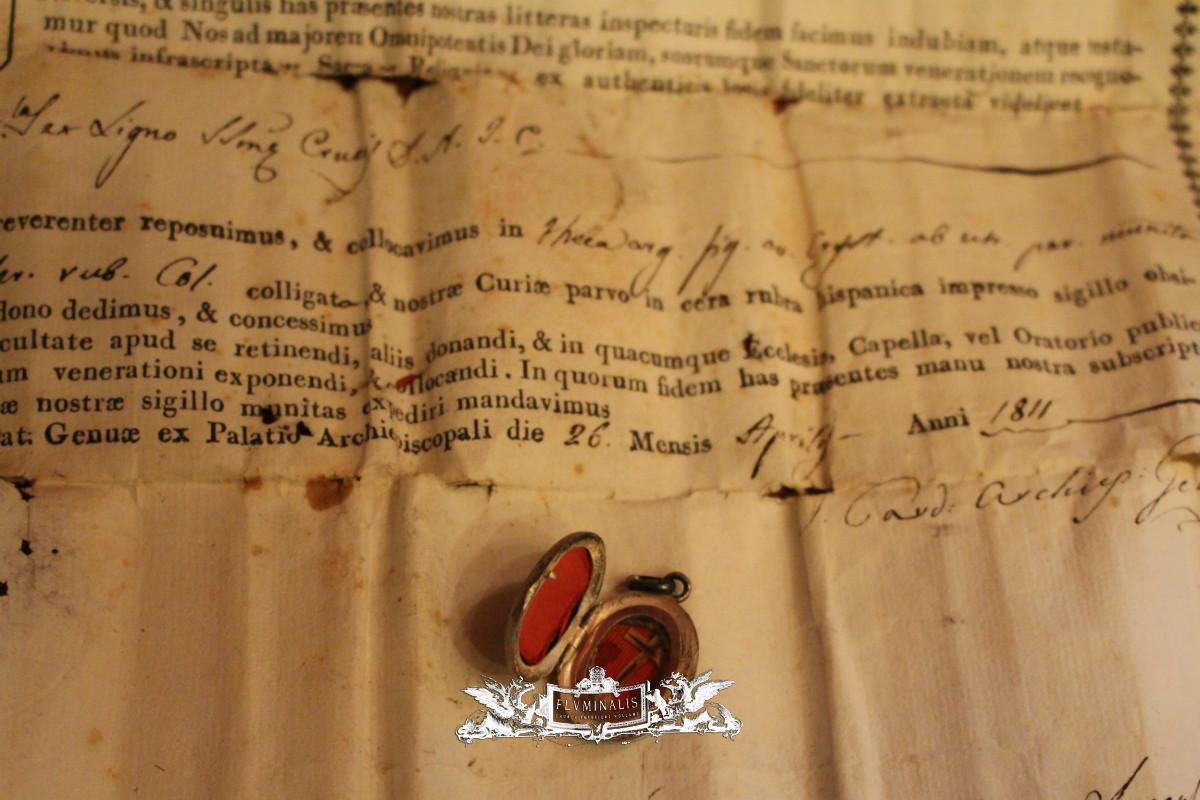 & singulis has præsentes nostras litteras inspecturis fidem facimus indubiam, atque testa-
mur quod Nos ad majoren Omnipotentis Dei gloriam, suorumque Sanctorum venerationem recogno-
infrascripta ex authenticis locis fideliter extracta videlicet
ex Ligno SSmæ Crucis D. N. J. C.
reverenter reposuimus, & collocavimus in Theca arg. fig. ov.
rub. Col. colligata & nostræ Curiæ parvo in cera rubra hispanica impresso sigillo obsi-
dono dedimus, & concessimus
cultate apud se retinendi, aliis donandi, & in quacumque Ecclesia, Capella, vel Oratorio public
um venerationi exponendi, & collocandi. In quorum fidem has præsentes manu nostra subscript
æ nostræ sigillo munitas expediri mandavimus
at. Genuæ ex Palatio Archiepiscopali die 26. Mensis Aprilis Anni 1811
Card. Archiep.
FLVMINALIS